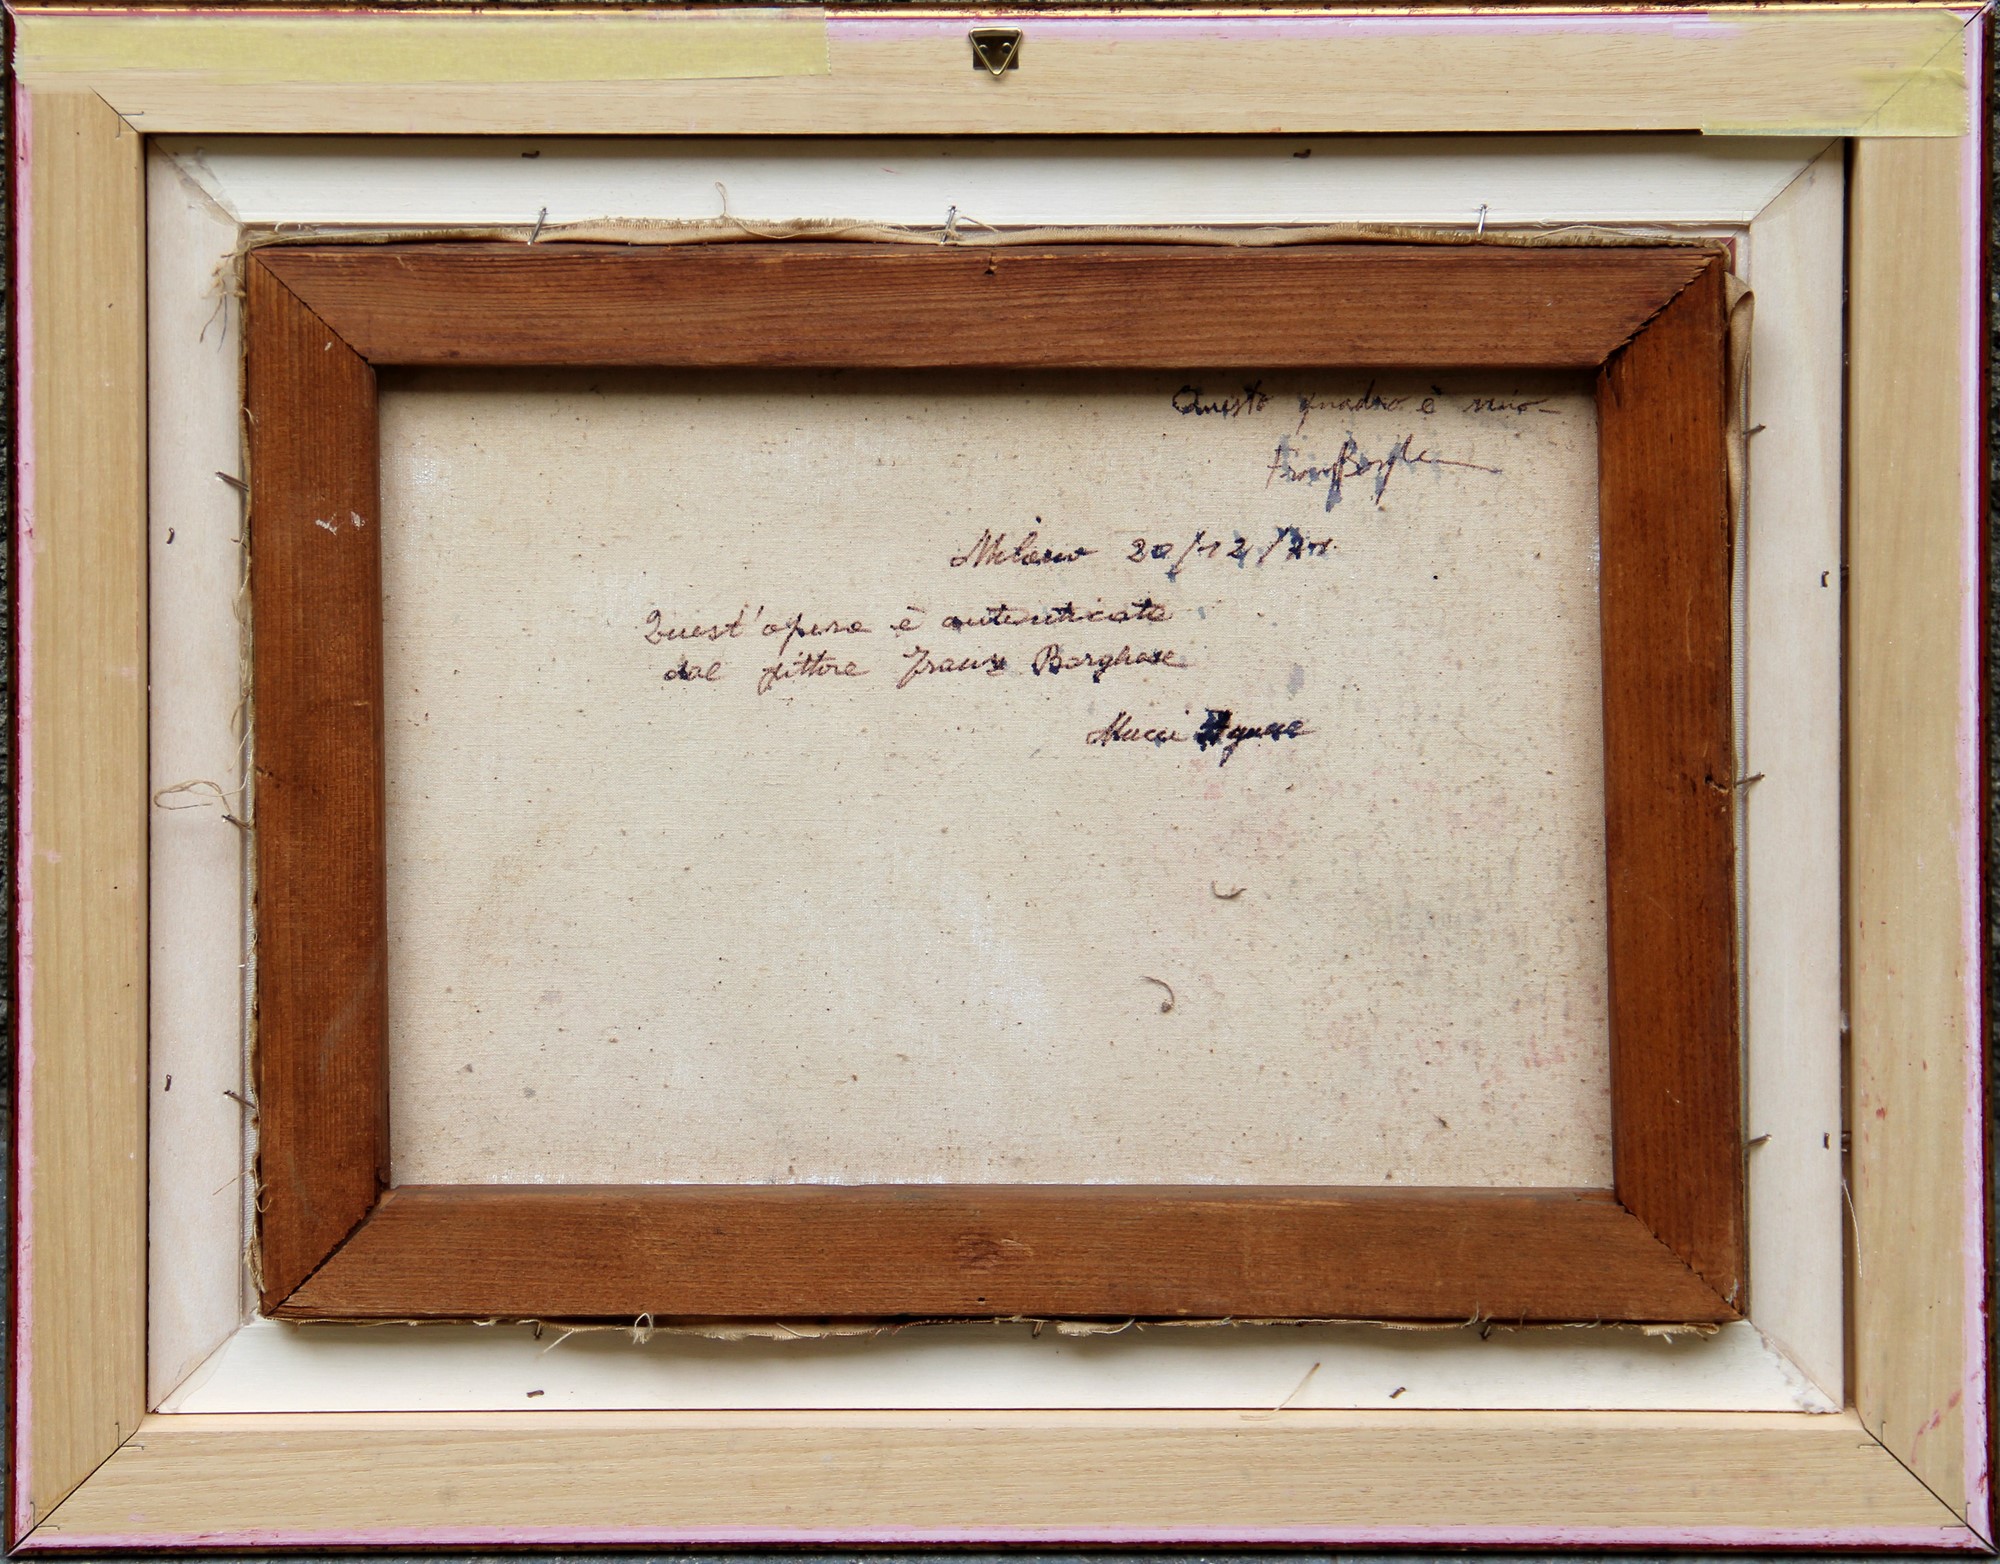 Questo quadro è mio
Franz Borghese
Milano 20/12/71.
Quest'opera è autenticata
dal pittore Franz Borghese
Mucci Agnese